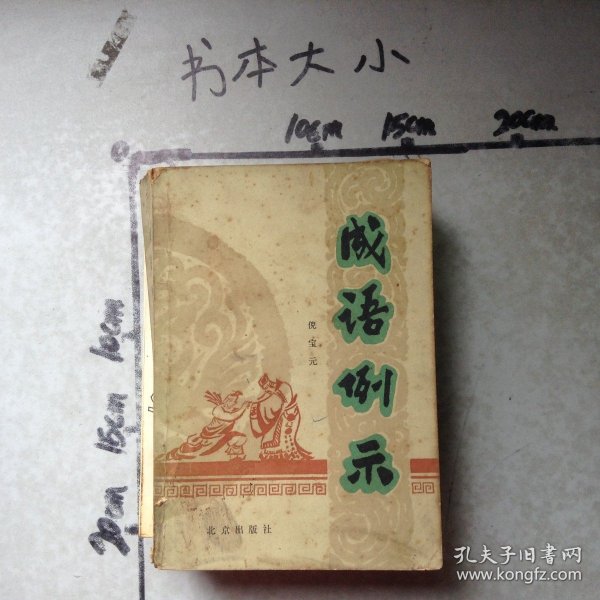 书本大小
10cm 15cm 20cm
10cm
15cm
20cm
成语例示
倪宝元
北京出版社
孔夫子旧书网
www.kongfz.com